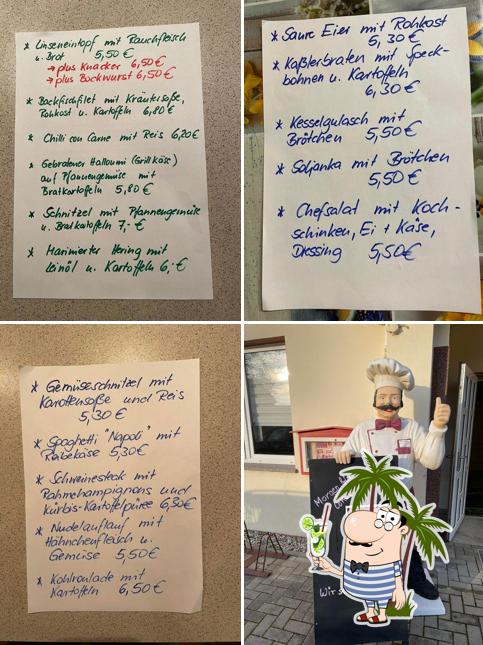 * Linseneintopf mit Rauchfleisch
u. Brot 5,50 €
→ plus Knacker 6,50 €
→ plus Bockwurst 6,50 €
* Backfischfilet mit Kräutersoße,
Rohkost u. Kartoffeln 6,80 €
* Chilli con Carne mit Reis 6,20 €
* Gebratener Halloumi (Grillkäse)
auf Pfannengemüse mit
Bratkartoffeln 5,80 €
* Schnitzel mit Pfannengemüse
u. Bratkartoffeln 7,- €
* Marinierter Hering mit
Leinöl u. Kartoffeln 6,- €
* Saure Eier mit Rohkost
5,30 €
* Kaßlerbraten mit Speck-
bohnen u. Kartoffeln
6,30 €
* Kesselgulasch mit
Brötchen 5,50 €
* Soljanka mit Brötchen
5,50 €
* Chefsalat mit Koch-
schinken, Ei + Käse,
Dressing 5,50 €
* Gemüseschnitzel mit
Karottensoße und Reis
5,30 €
* Spaghetti "Napoli" mit
Reibekäse 5,30 €
* Schweinesteak mit
Rahmchampignons und
Kürbis-Kartoffelpüree 6,50 €
* Nudelauflauf mit
Hähnchenfleisch u.
Gemüse 5,50 €
* Kohlroulade mit
Kartoffeln 6,50 €
Wir